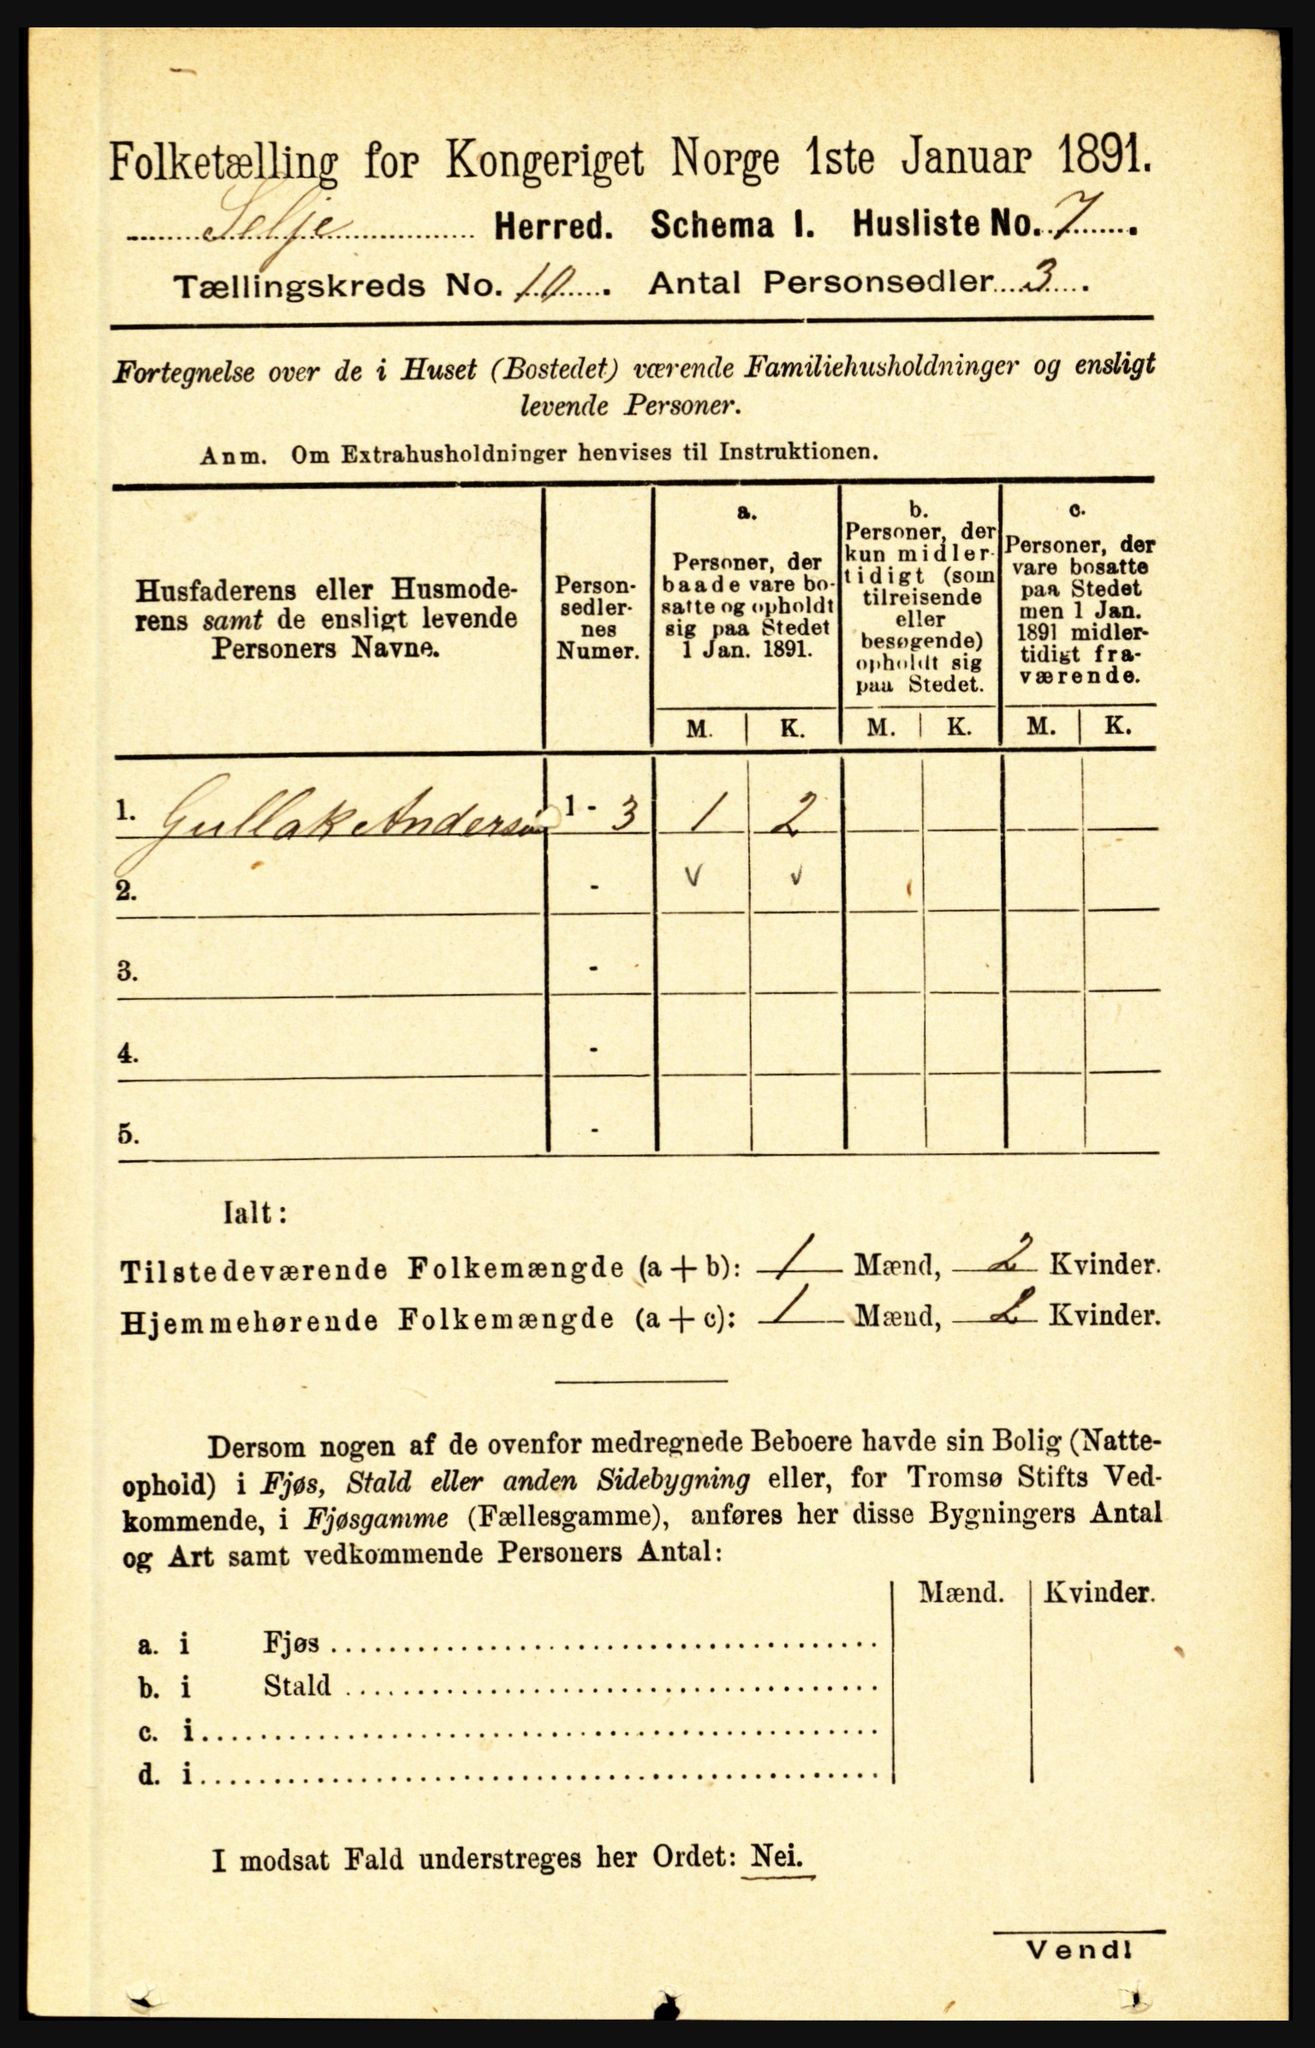 Folketælling for Kongeriget Norge 1ste Januar 1891.
Selje Herred. Schema I. Husliste No. 7.
Tællingskreds No. 10. Antal Personsedler 3.
Fortegnelse over de i Huset (Bostedet) værende Familiehusholdninger og ensligt
levende Personer.
Anm. Om Extrahusholdninger henvises til Instruktionen.
Husfaderens eller Husmode-
rens samt de ensligt levende
Personers Navne.
Person-
sedler-
nes
Numer.
a.
Personer, der
baade vare bo-
satte og opholdt
sig paa Stedet
1 Jan. 1891.
b.
Personer, der
kun midler-
tidigt (som
tilreisende
eller
besøgende)
opholdt sig
paa Stedet.
c.
Personer, der
vare bosatte
paa Stedet
men 1 Jan.
1891 midler-
tidigt fra-
værende.
M. K. M. K. M. K.
1. Gullak Anderson 1 - 3 1 2
2. - v v
3. -
4. -
5. -
Ialt:
Tilstedeværende Folkemængde (a + b): 1 Mænd, 2 Kvinder.
Hjemmehørende Folkemængde (a + c): 1 Mænd, 2 Kvinder.
Dersom nogen af de ovenfor medregnede Beboere havde sin Bolig (Natte-
ophold) i Fjøs, Stald eller anden Sidebygning eller, for Tromsø Stifts Ved-
kommende, i Fjøsgamme (Fællesgamme), anføres her disse Bygningers Antal
og Art samt vedkommende Personers Antal:
Mænd. Kvinder.
a. i Fjøs
b. i Stald
c. i
d. i
I modsat Fald understreges her Ordet: Nei.
Vend!